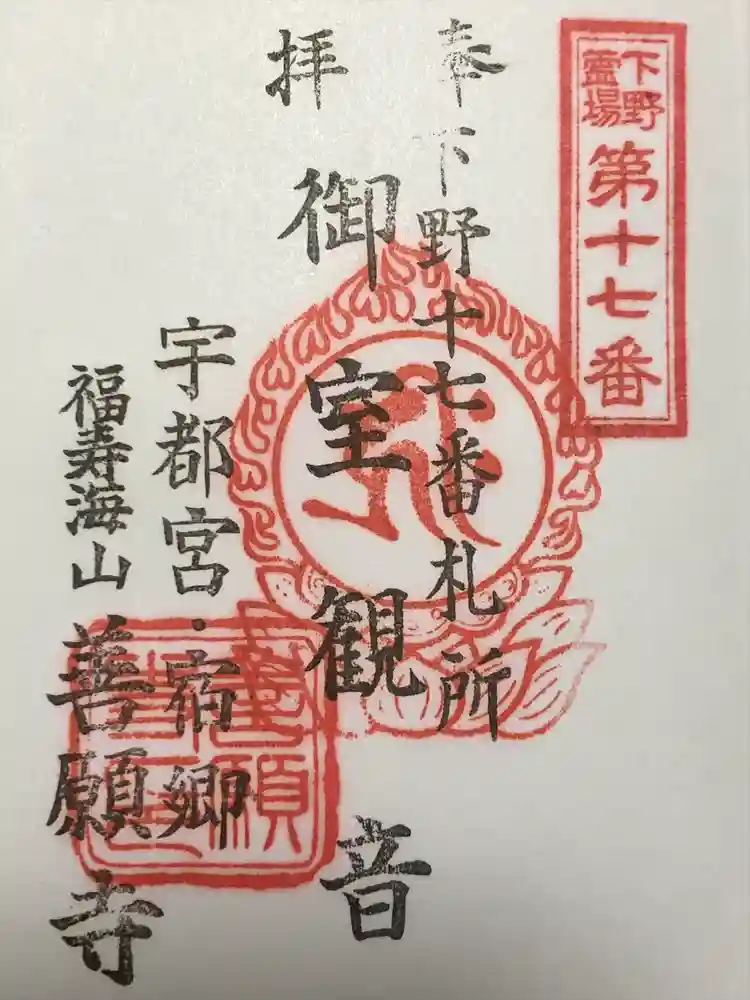 下野
霊場
第十七番
奉
下野十七番札所
拝
御室観音
宇都宮・宿郷
福寿海山
善願寺